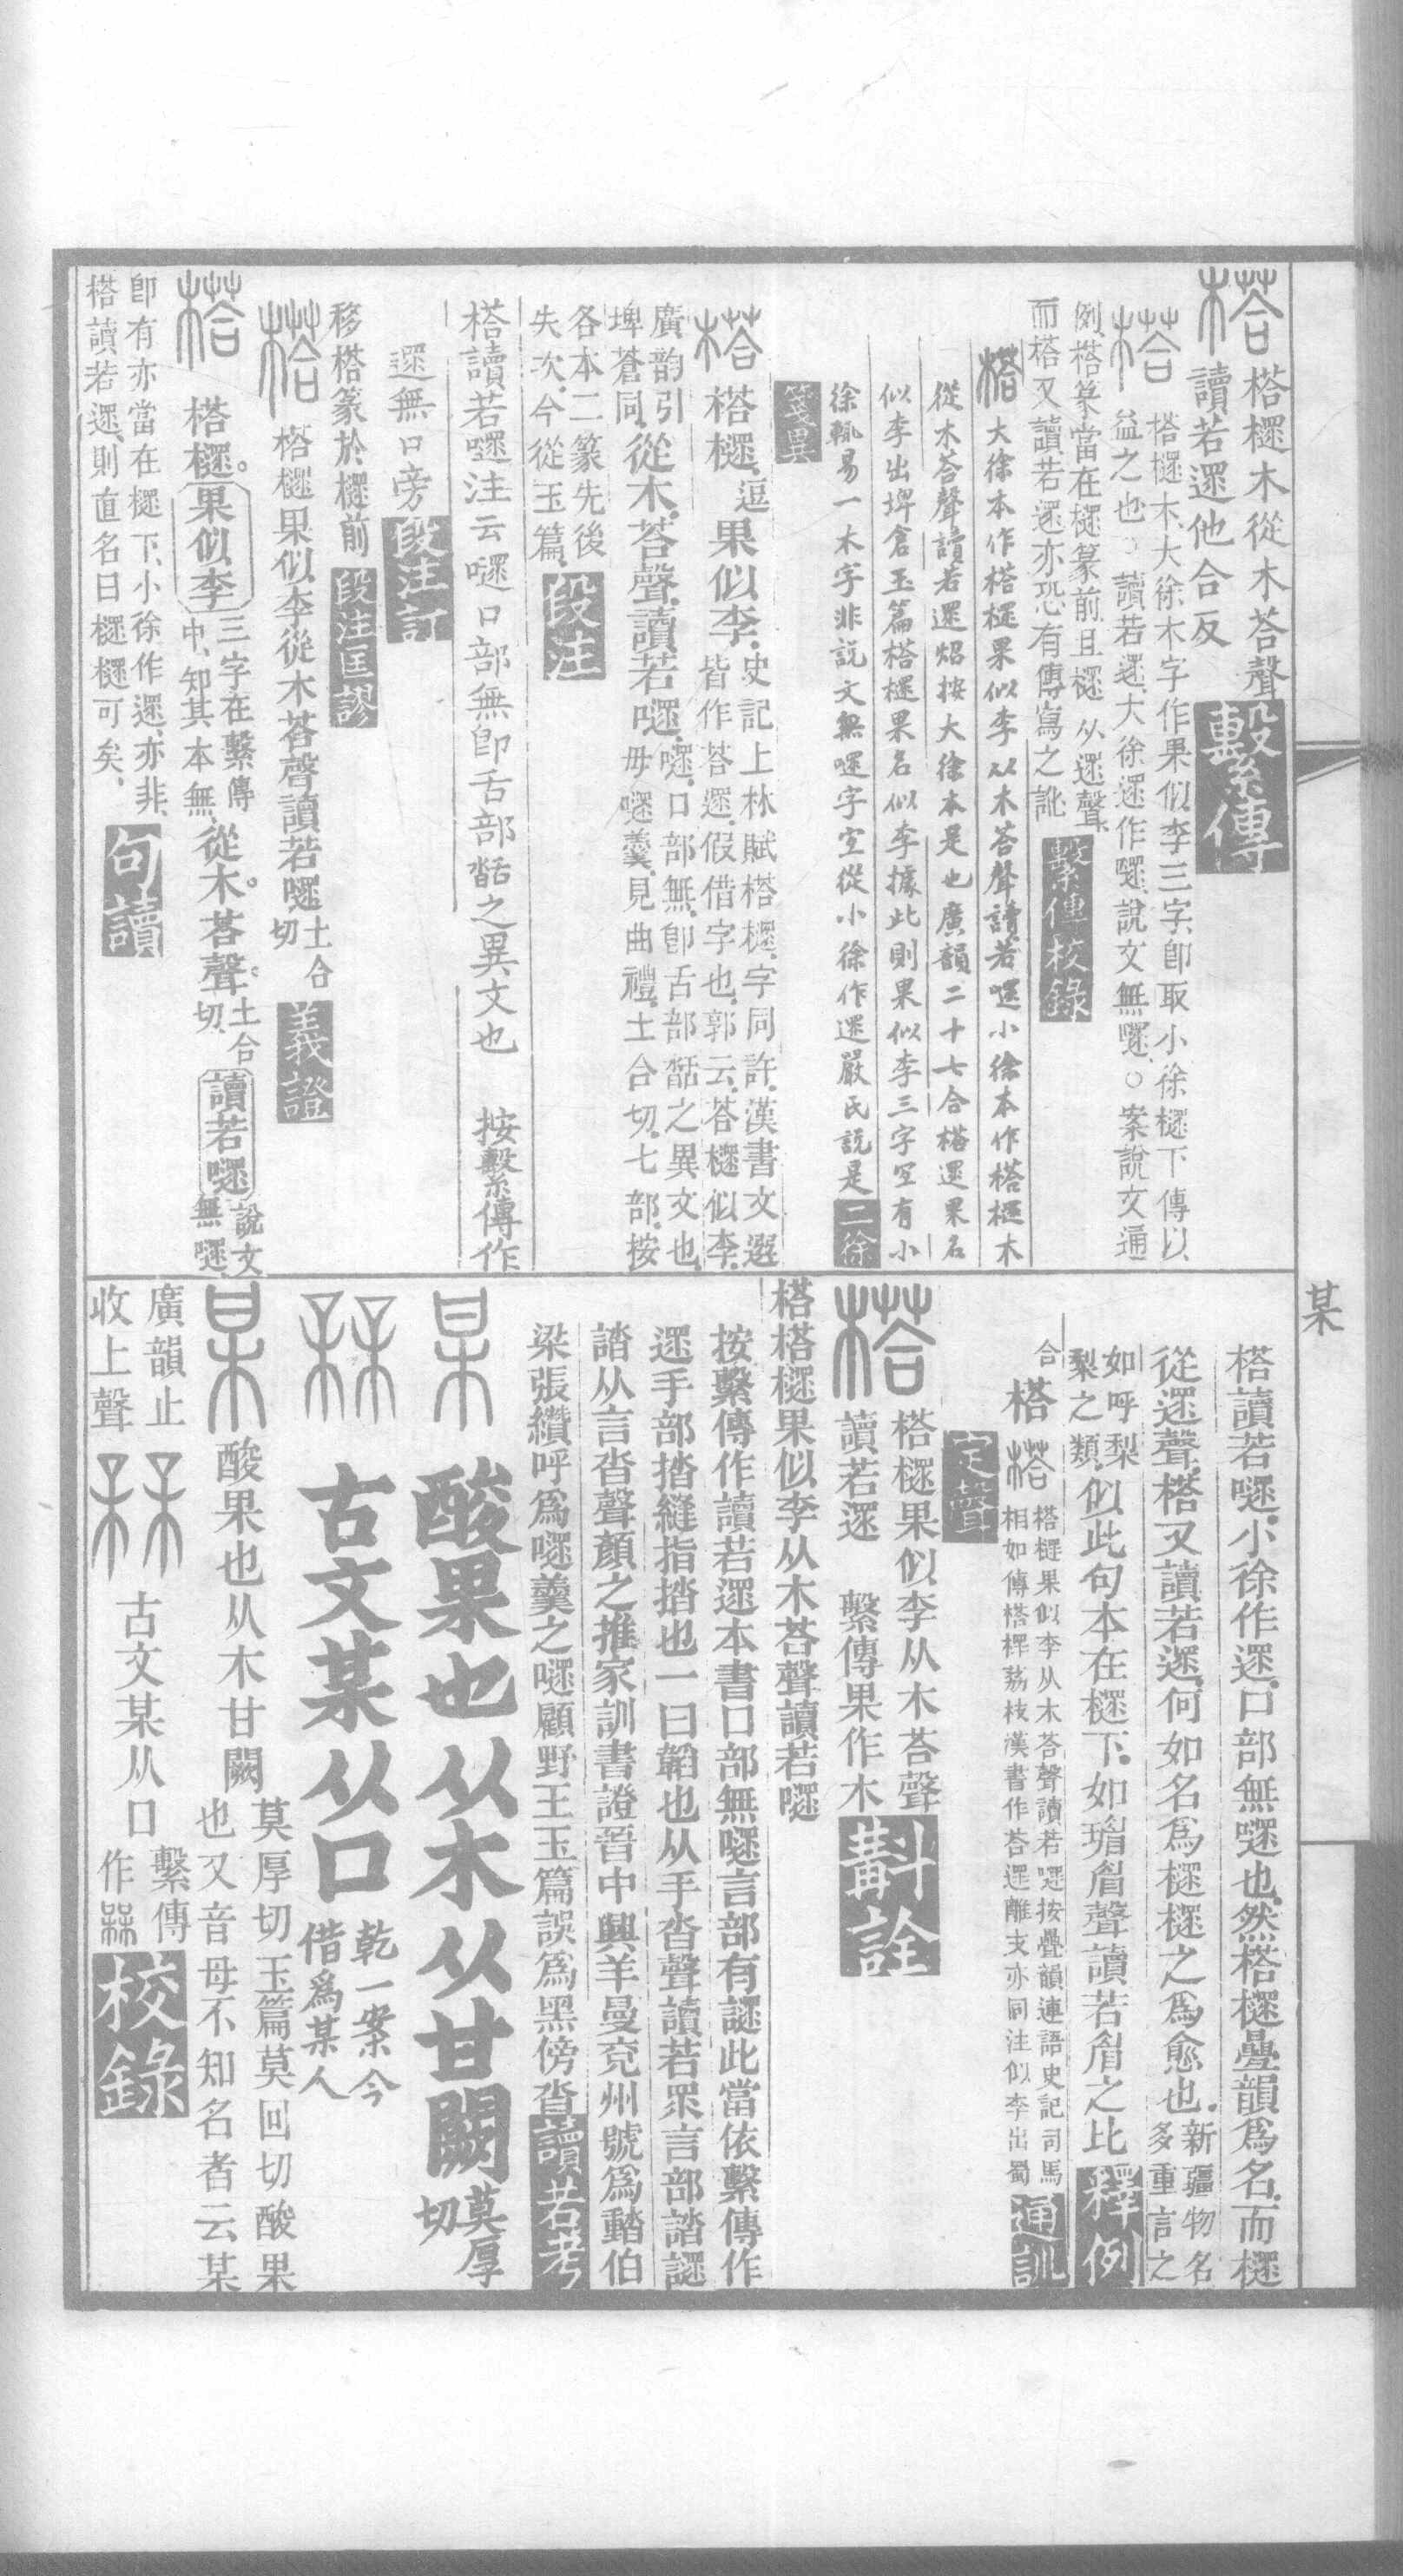 榙㯚木從木荅聲
讀若遝他合反
繫傳
榙㯚木、大徐木字作果似李三字、卽取小徐㯚下傳以
益之也○讀若遝、大徐遝作嚃、說文無嚃、○案說文通
例、榙篆當在㯚篆前、且㯚从遝聲、
而榙又讀若遝、亦恐有傳寫之訛
繫傳校錄
榙大徐本作榙㯚果似李从木荅聲讀若嚃小徐本作榙㯚木
從木荅聲讀若遝炤按大徐本是也廣韻二十七合榙遝果名
似李出埤倉玉篇榙㯚果名似李據此則果似李三字宐有小
徐輒易一木字非說文無嚃字宐從小徐作遝嚴氏說是
二徐
箋異
榙㯚、逗果似李、史記上林賦榙㯚、字同許、漢書文選
皆作荅遝、假借字也、郭云、荅㯚似李、
廣韵引
埤蒼同、從木、荅聲、讀若嚃、嚃、口部無、卽舌部䑜之異文也、
毋嚃羹、見曲禮、土合切、七部、按
各本二篆先後
失次、今從玉篇、
段注
榙讀若嚃注云嚃口部無卽舌部䑜之異文也 按繫傳作
遝無口旁
段注訂
移榙篆於㯚前
段注匡謬
榙㯚果似李從木荅聲讀若嚃土合切
義證
榙㯚。果似李三字、在繫傳
中、知其本無、從木。荅聲。土合切、讀若嚃說文
無嚃、
卽有亦當在㯚下、小徐作遝、亦非、
榙讀若遝、則直名曰㯚㯚可矣、
句讀
某
榙讀若嚃、小徐作遝、口部無嚃也、然榙㯚疊韻爲名、而㯚
從遝聲、榙又讀若遝、何如名爲㯚㯚之爲愈也、新疆物名
多重言之
如呼梨
梨之類、似此句本在㯚下、如瑂眉聲讀若眉之比
釋例
合榙榙㯚果似李从木荅聲讀若嚃按疊韻連語史記司馬
相如傳榙㮚荔枝漢書作荅遝離支亦同注似李出蜀
通訓
定聲
榙㯚果似李从木荅聲
讀若遝 繫傳果作木
斠詮
榙榙㯚果似李从木荅聲讀若嚃
按繫傳作讀若遝本書口部無嚃言部有謎此當依繫傳作
遝手部揩縫指揩也一曰韜也从手沓聲讀若眔言部誻謎
誻从言沓聲顏之推家訓書證晉中興羊曼兗州號爲䵬伯
梁張纘呼爲嚃羹之嚃顧野王玉篇誤爲黑傍沓
讀若考
酸果也从木从甘闕莫厚切
古文某从口
乾一案今
借爲某人
酸果也从木甘闕莫厚切玉篇莫回切酸果
也又音母不知名者云某
廣韻止
收上聲
古文某从口繫傳
作槑
校錄